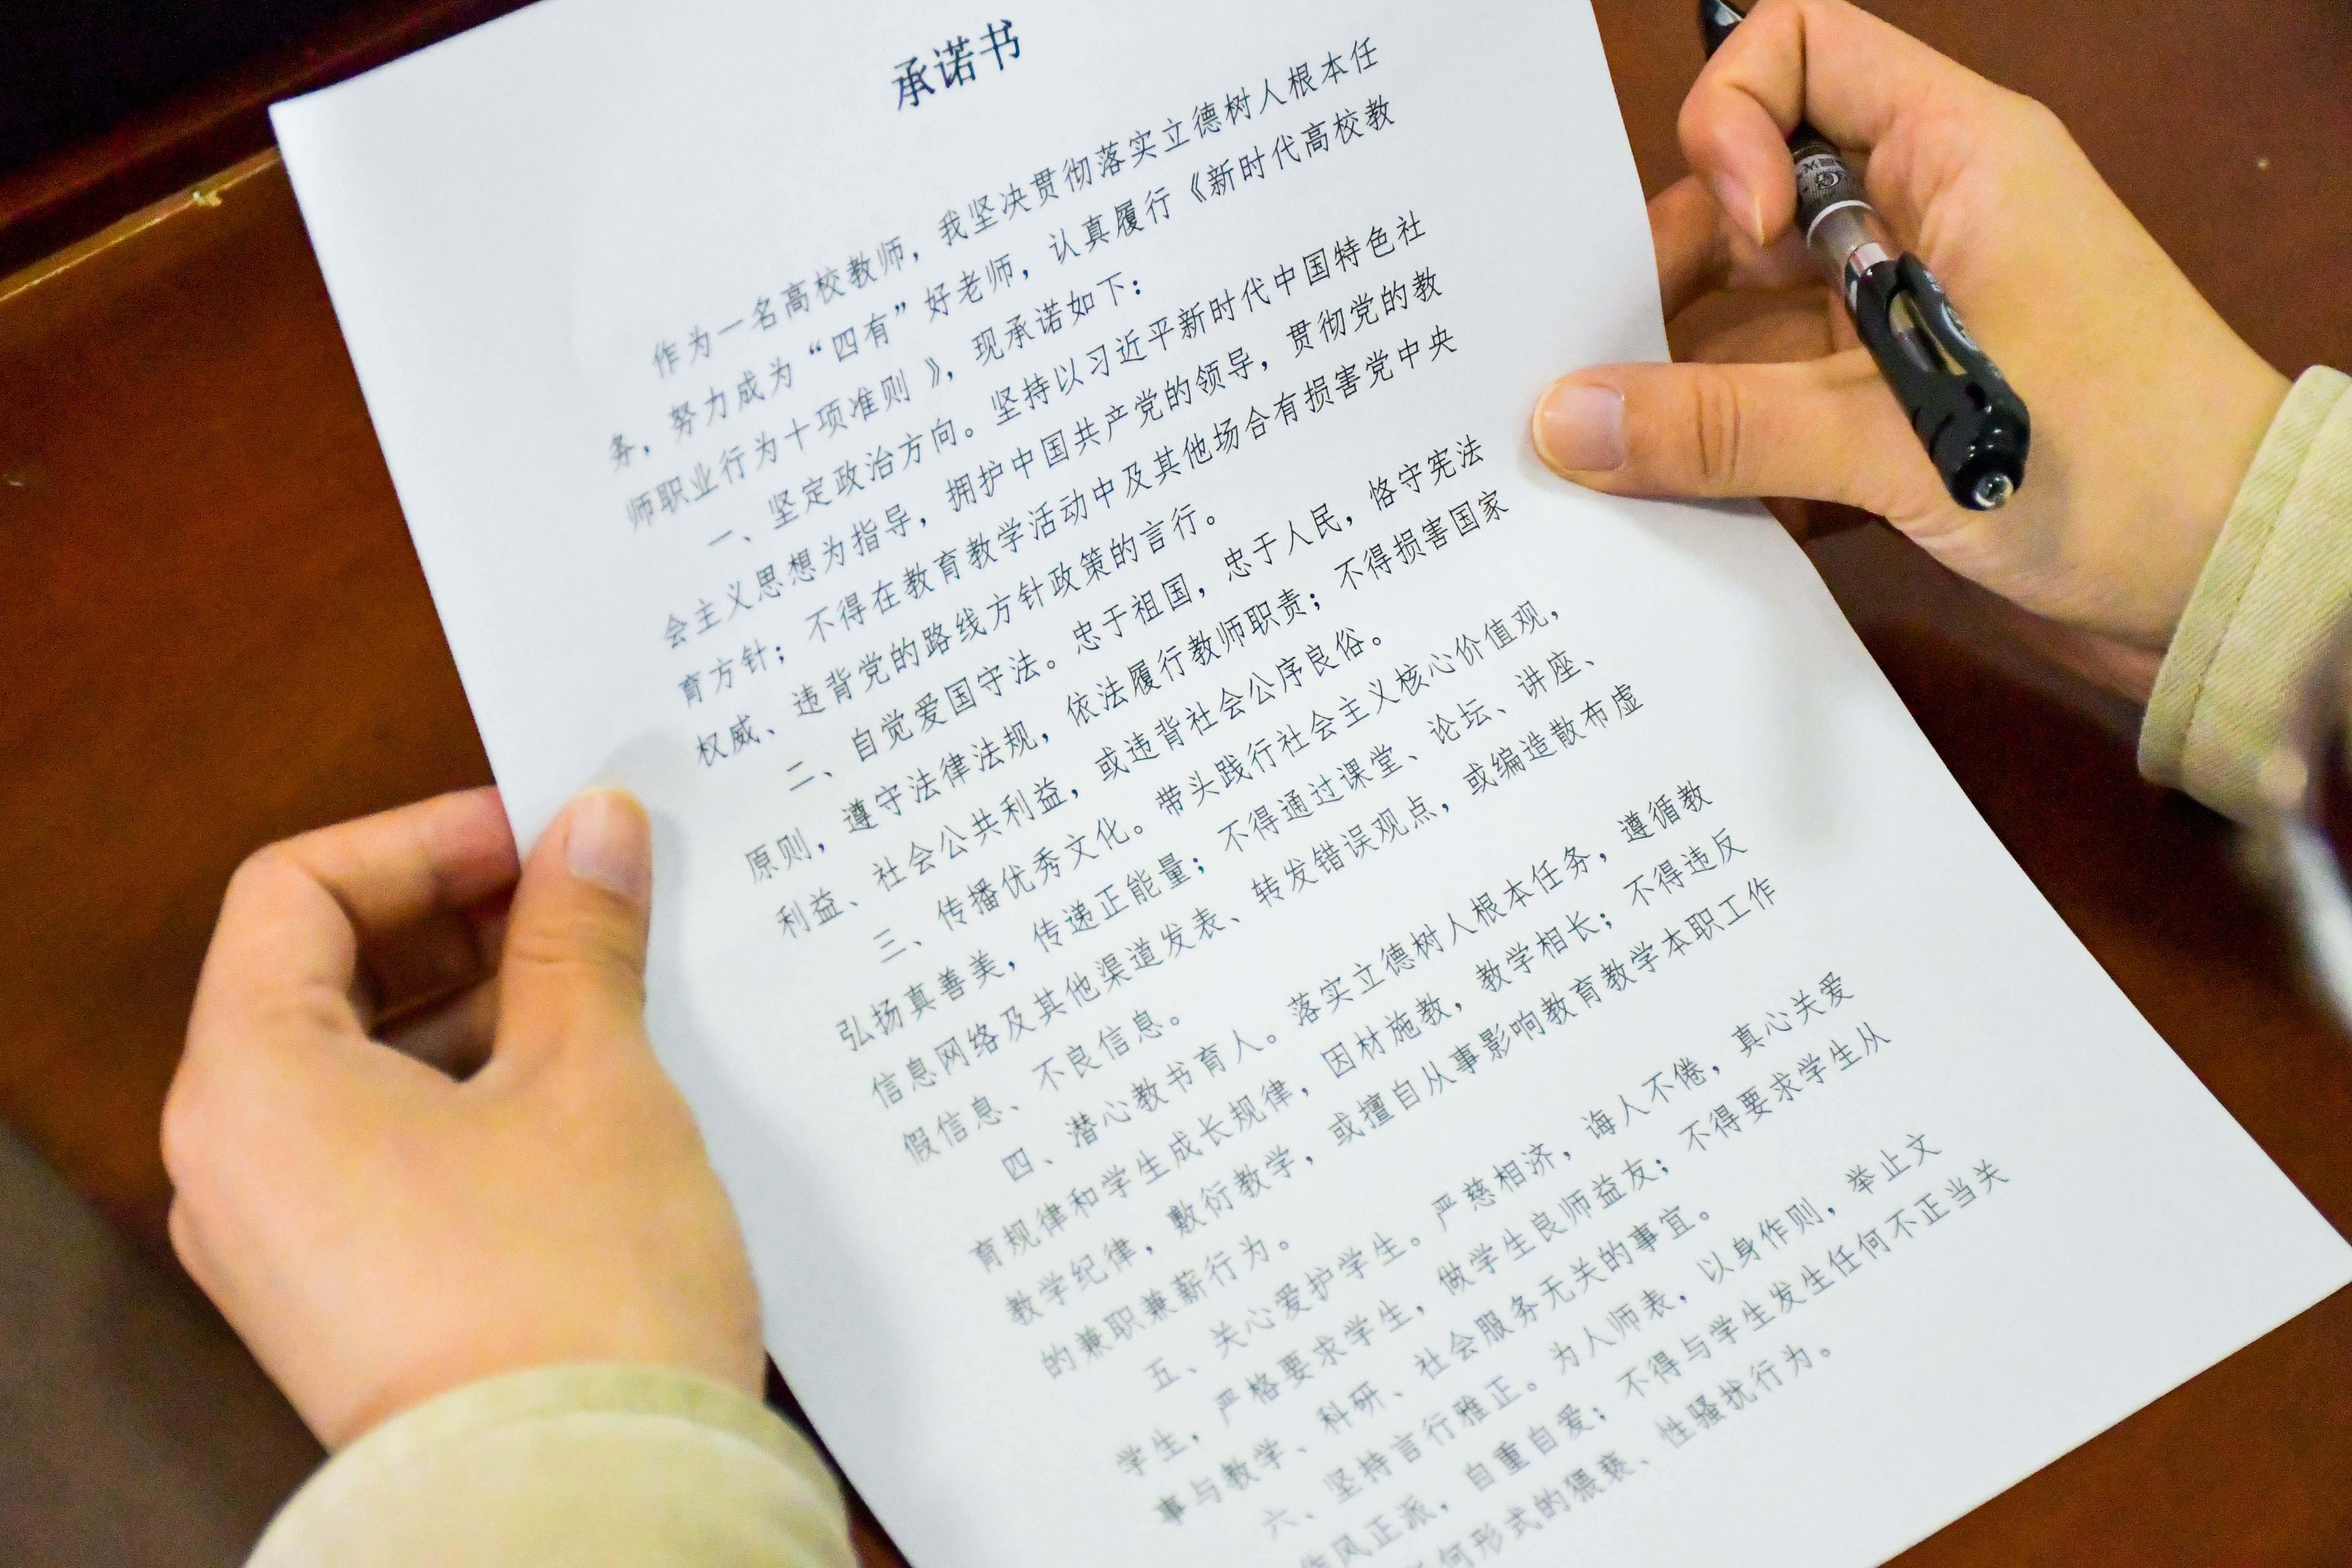 承诺书
作为一名高校教师，我坚决贯彻落实立德树人根本任
务，努力成为“四有”好老师，认真履行《新时代高校教
师职业行为十项准则》，现承诺如下：
一、坚定政治方向。坚持以习近平新时代中国特色社
会主义思想为指导，拥护中国共产党的领导，贯彻党的教
育方针；不得在教育教学活动中及其他场合有损害党中央
权威、违背党的路线方针政策的言行。
二、自觉爱国守法。忠于祖国，忠于人民，恪守宪法
原则，遵守法律法规，依法履行教师职责；不得损害国家
利益、社会公共利益，或违背社会公序良俗。
三、传播优秀文化。带头践行社会主义核心价值观，
弘扬真善美，传递正能量；不得通过课堂、论坛、讲座、
信息网络及其他渠道发表、转发错误观点，或编造散布虚
假信息、不良信息。
四、潜心教书育人。落实立德树人根本任务，遵循教
育规律和学生成长规律，因材施教，教学相长；不得违反
教学纪律，敷衍教学，或擅自从事影响教育教学本职工作
的兼职兼薪行为。
五、关心爱护学生。严慈相济，诲人不倦，真心关爱
学生，严格要求学生，做学生良师益友；不得要求学生从
事与教学、科研、社会服务无关的事宜。
六、坚持言行雅正。为人师表，以身作则，举止文
作风正派，自重自爱；不得与学生发生任何不正当关
何形式的猥亵、性骚扰行为。